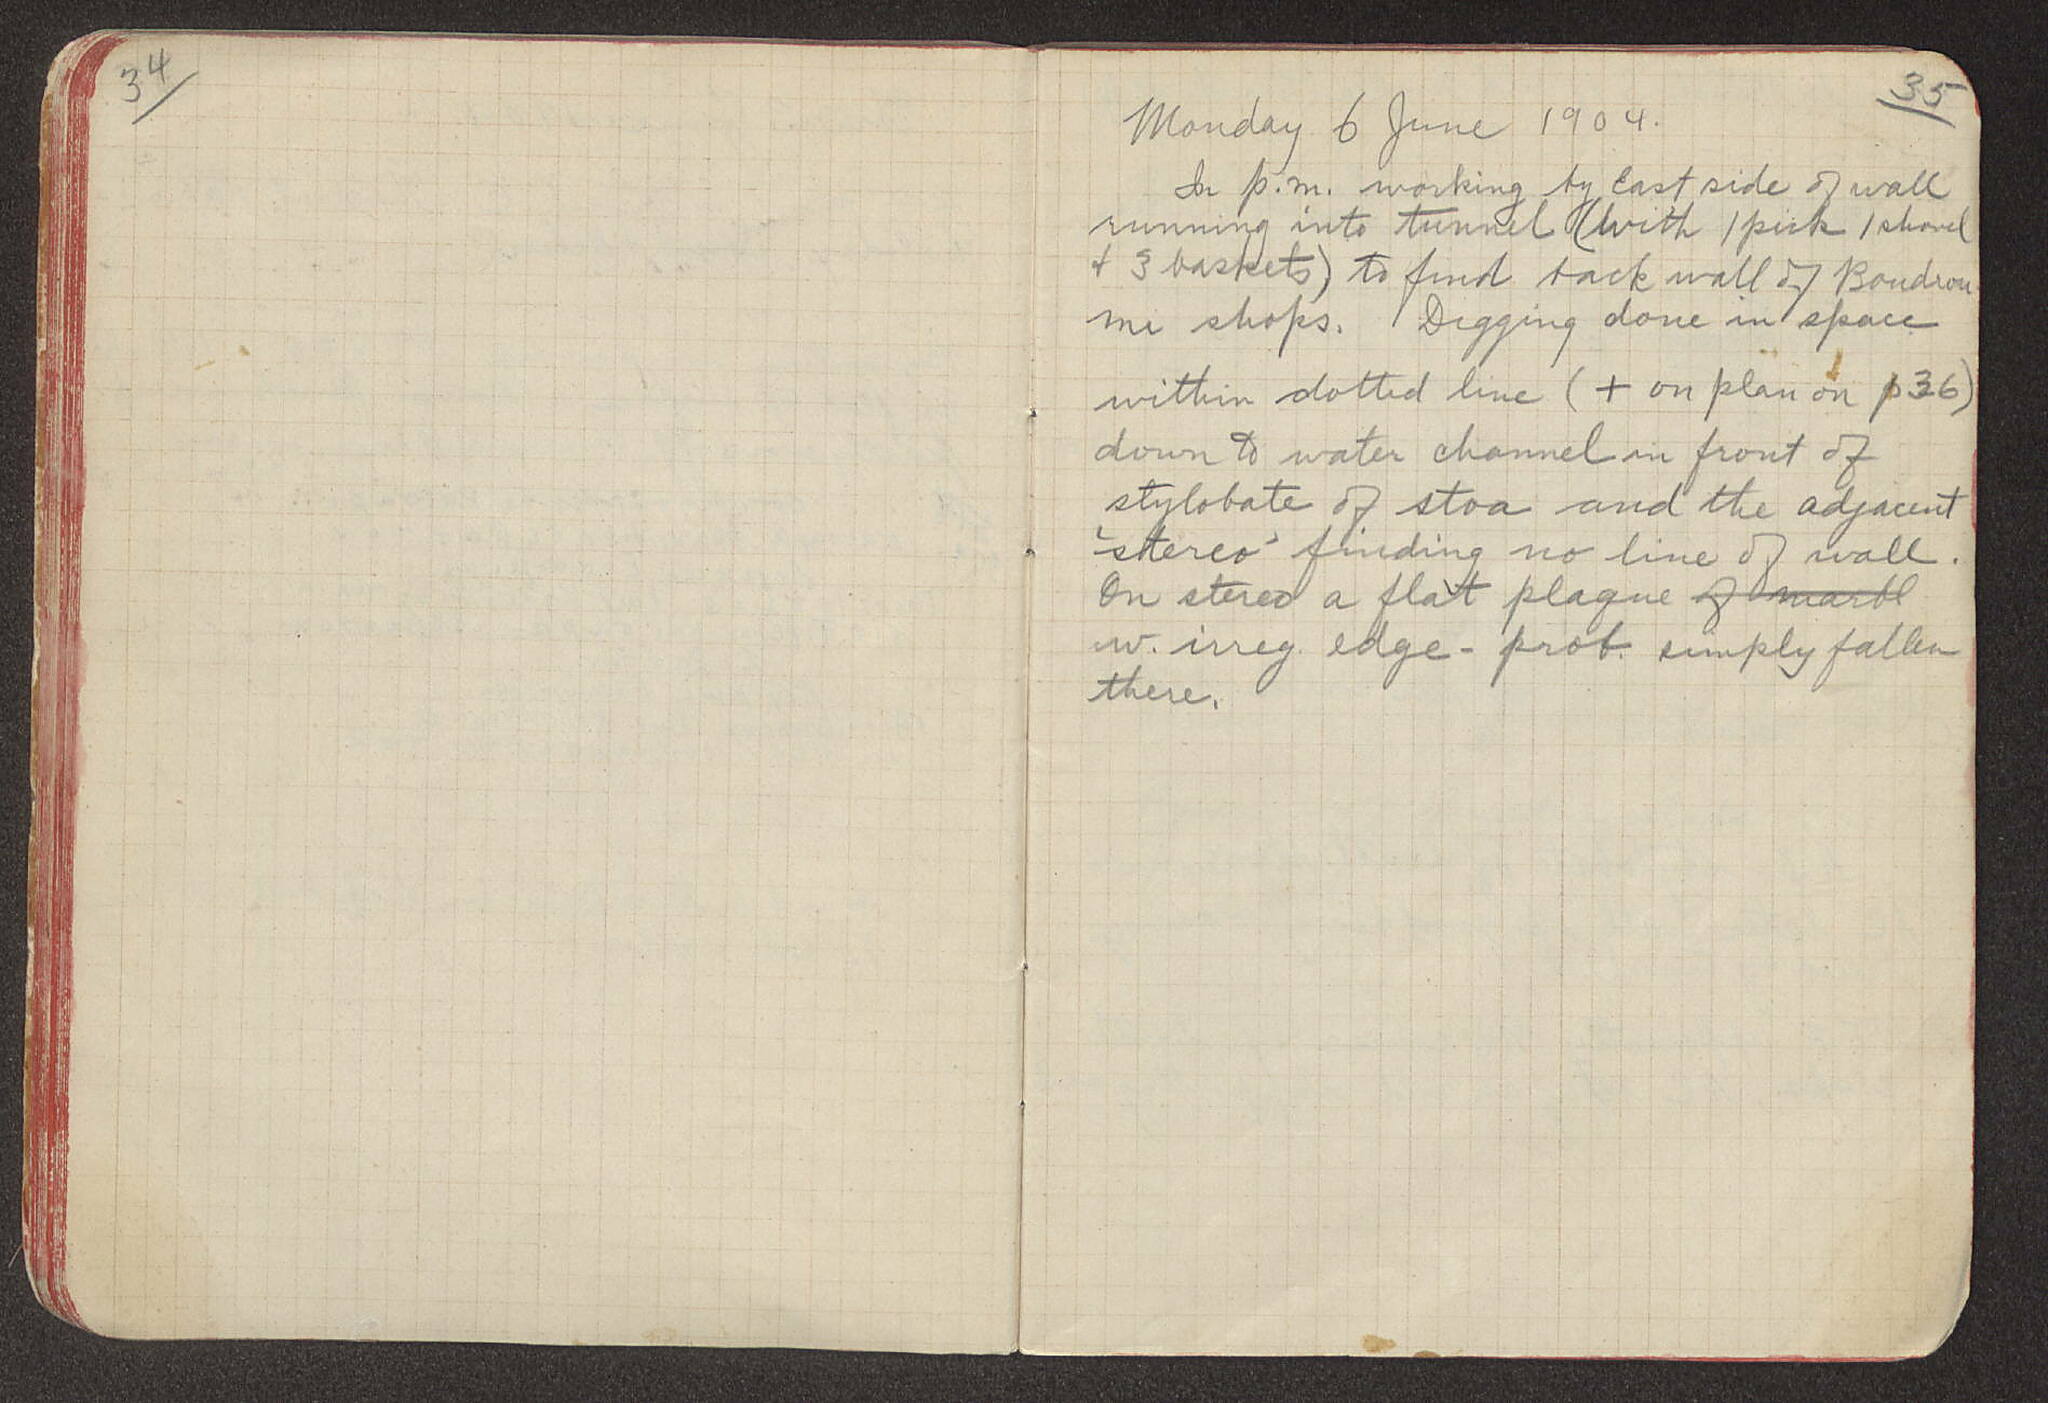 34
35
Monday 6 June 1904.
In p.m. working by East side of wall
running into tunnel (with 1 pick 1 shovel
+ 3 baskets) to find back wall of Boudrou-
mi shops. Digging done in space
within dotted line (+ on plan on p 36)
down to water channel in front of
stylobate of stoa and the adjacent
'stereo' finding no line of wall.
On stereo a flat plaque of marbl
w. irreg. edge - prob. simply fallen
there.